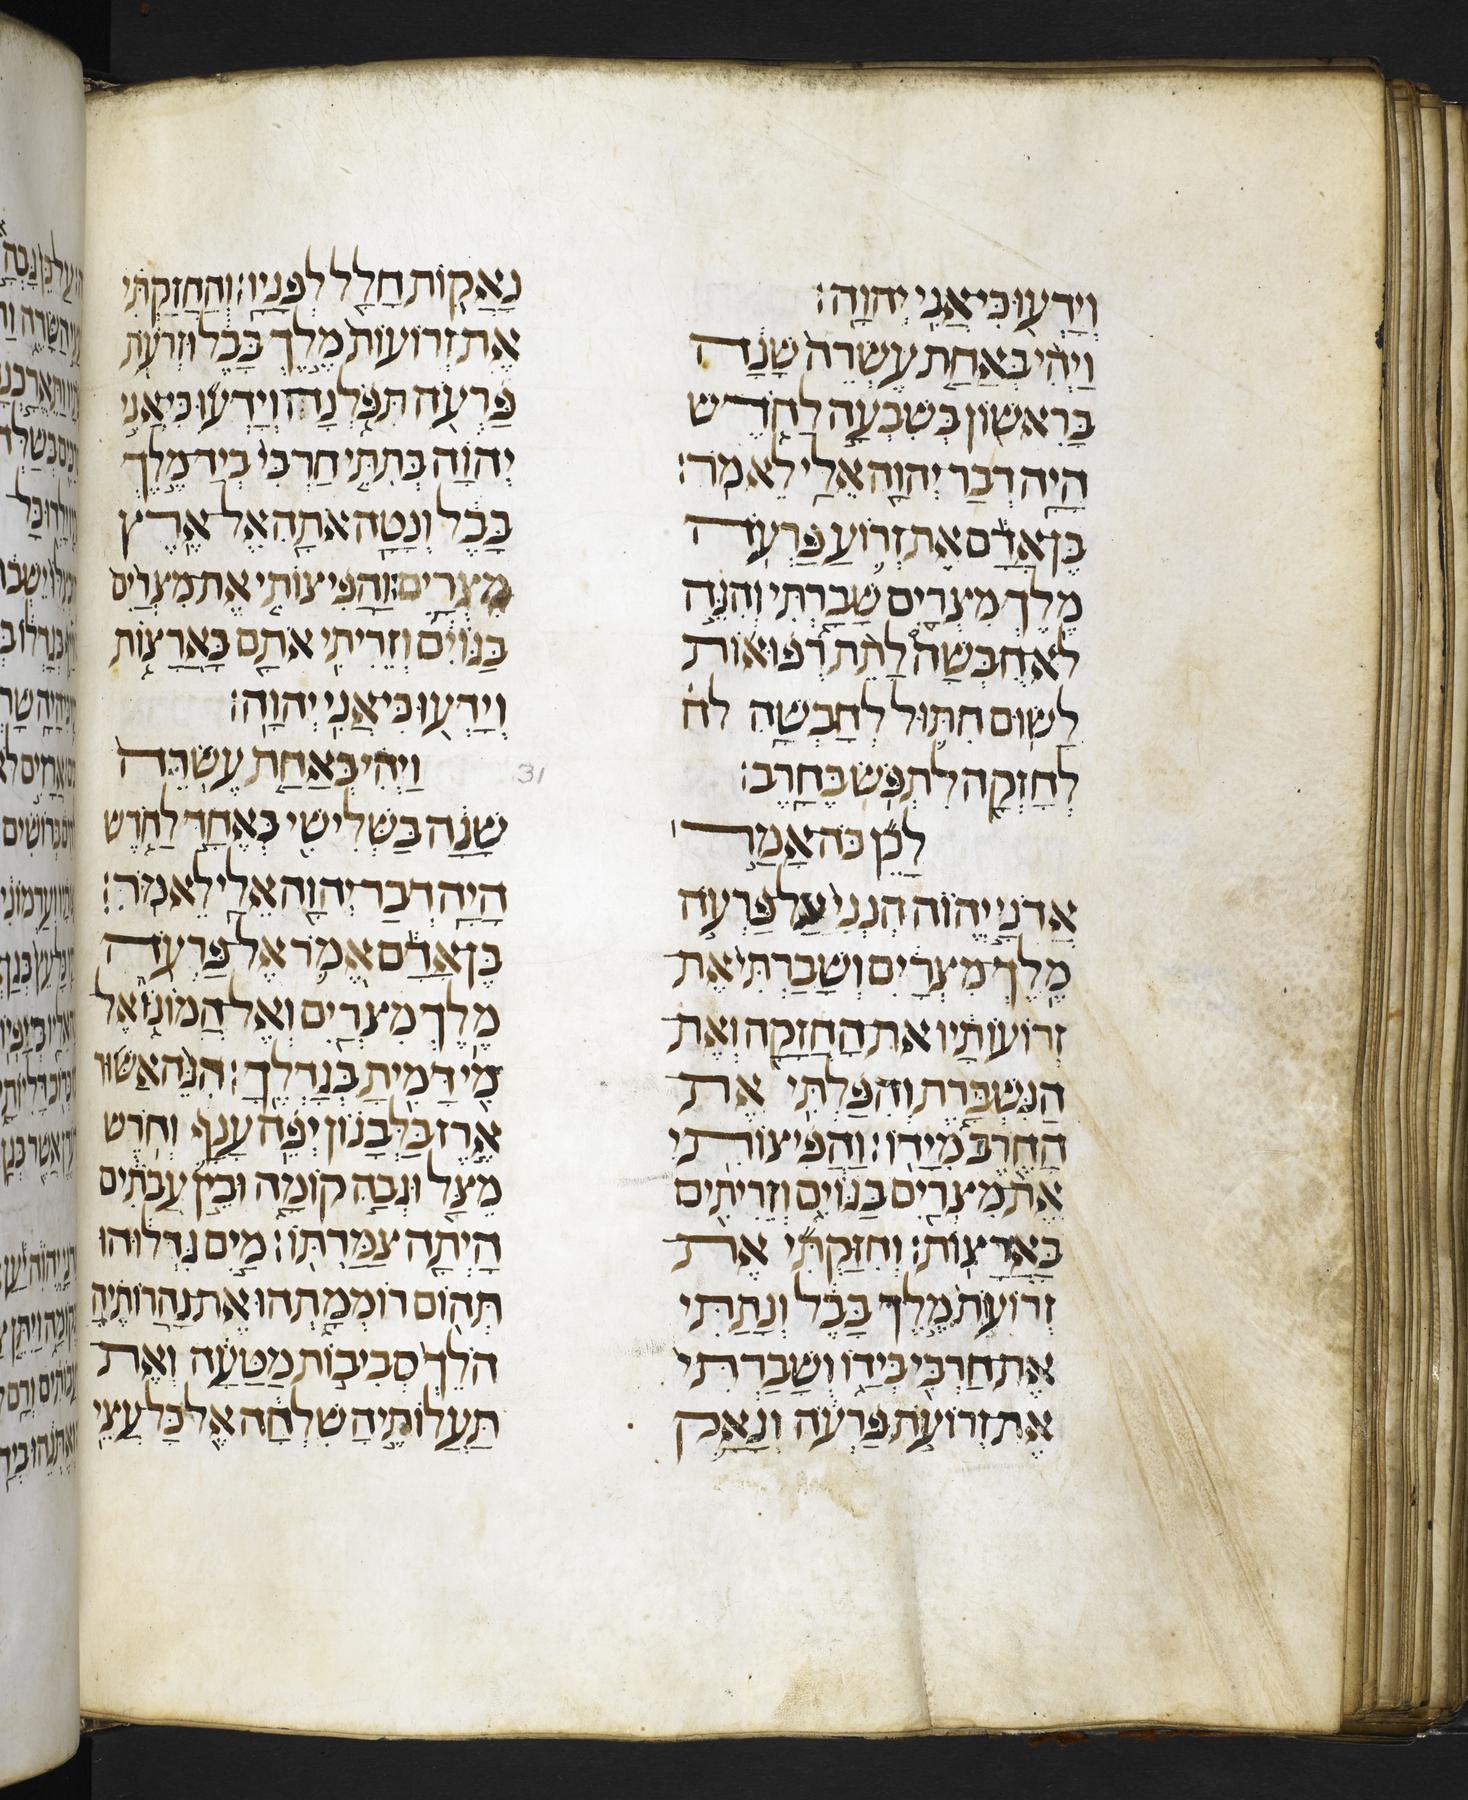 וְיָדְעוּ כִּי אֲנִי יְהוָה׃
וַיְהִי בְּאַחַת עֶשְׂרֵה שָׁנָה
בָּרִאשׁוֹן בְּשִׁבְעָה לַחֹדֶשׁ
הָיָה דְבַר יְהוָה אֵלַי לֵאמֹר׃
בֶּן אָדָם אֶת זְרוֹעַ פַּרְעֹה
מֶלֶךְ מִצְרַיִם שָׁבָרְתִּי וְהִנֵּה
לֹא חֻבְּשָׁה לָתֵת רְפֻאוֹת
לָשׂוּם חִתּוּל לְחָבְשָׁהּ לח
לְחָזְקָהּ לִתְפֹּשׂ בֶּחָרֶב׃
לָכֵן כֹּה אָמַר
אֲדֹנָי יֱהוִֹה הִנְנִי עַל פַּרְעֹה
מֶלֶךְ מִצְרַיִם וְשָׁבַרְתִּי אֶת
זְרוֹעוֹתָיו אֶת הַחֲזָקָה וְאֶת
הַנִּשְׁבָּרֶת וְהִפַּלְתִּי אֶת
הַחֶרֶב מִיָּדוֹ׃ וַהֲפִיצוֹתִי
אֶת מִצְרַיִם בַּגּוֹיִם וְזֵרִיתִים
בָּאֲרָצוֹת׃ וְחִזַּקְתִּי אֶת
זְרוֹעֹת מֶלֶךְ בָּבֶל וְנָתַתִּי
אֶת חַרְבִּי בְּיָדוֹ וְשָׁבַרְתִּי
אֶת זְרוֹעֹת פַּרְעֹה וְנָאַק
נַאֲקוֹת חָלָל לְפָנָיו׃ וְהַחֲזַקְתִּי
אֶת זְרוֹעוֹת מֶלֶךְ בָּבֶל וּזְרֹעוֹת
פַּרְעֹה תִּפֹּלְנָה וְיָדְעוּ כִּי אֲנִי
יְהוָה בְּתִתִּי חַרְבִּי בְּיַד מֶלֶךְ
בָּבֶל וְנָטָה אֹתָהּ אֶל אֶרֶץ
מִצְרָיִם׃ וַהֲפִיצוֹתִי אֶת מִצְרַיִם
בַּגּוֹיִם וְזֵרִיתִי אֹתָם בָּאֲרָצוֹת
וְיָדְעוּ כִּי אֲנִי יְהוָה׃
וַיְהִי בְּאַחַת עֶשְׂרֵה
31
שָׁנָה בַּשְּׁלִישִׁי בְּאֶחָד לַחֹדֶשׁ
הָיָה דְבַר יְהוָה אֵלַי לֵאמֹר׃
בֶּן אָדָם אֱמֹר אֶל פַּרְעֹה
מֶלֶךְ מִצְרַיִם וְאֶל הֲמוֹנוֹ אֶל
מִי דָּמִיתָ בְגָדְלֶךָ׃ הִנֵּה אַשּׁוּר
אֶרֶז בַּלְּבָנוֹן יְפֵה עָנָף וְחֹרֶשׁ
מֵצַל וּגְבַהּ קוֹמָה וּבֵין עֲבֹתִים
הָיְתָה צַמַּרְתּוֹ׃ מַיִם גִּדְּלוּהוּ
תְּהוֹם רוֹמְמָתְהוּ אֶת נַהֲרוֹתֶיהָ
הֹלֵךְ סְבִיבוֹת מַטָּעָהּ וְאֶת
תְּעָלוֹתֶיהָ שִׁלְחָה אֶל כָּל עֲצֵי